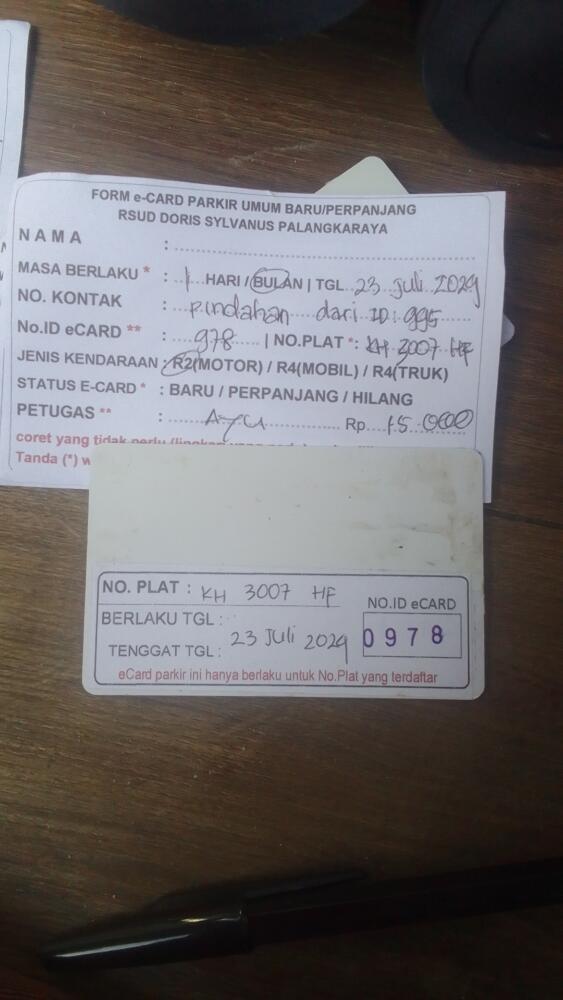 FORM e-CARD PARKIR UMUM BARU/PERPANJANG
RSUD DORIS SYLVANUS PALANGKARAYA
NAMA :
MASA BERLAKU * : 1 HARI / BULAN | TGL 23 juli 2029
NO. KONTAK : pindahan dari ID : 995
No.ID eCARD ** : 978 | NO.PLAT *: KH 3007 HF
JENIS KENDARAAN : R2(MOTOR) / R4(MOBIL) / R4(TRUK)
STATUS E-CARD * : BARU / PERPANJANG / HILANG
PETUGAS ** : AYU Rp. 15.000
coret yang tidak perlu
Tanda (*) w
NO. PLAT : KH 3007 HF
NO.ID eCARD
BERLAKU TGL :
0978
TENGGAT TGL : 23 Juli 2029
eCard parkir ini hanya berlaku untuk No.Plat yang terdaftar